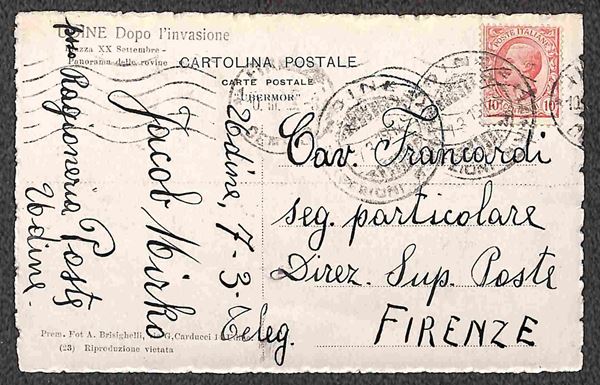 INE Dopo l'invasione
azza XX Settembre -
Panorama delle rovine
CARTOLINA POSTALE
CARTE POSTALE
POSTE ITALIANE
10 10
Cav. Francardi
seg. particolare
Direz. Sup. Poste
Teleg. FIRENZE
Udine, 7-3-
Jacob Mirko
Ragioneria Poste
Udine.
Prem. Fot A. Brisighelli, G. Carducci
(23) Riproduzione vietata